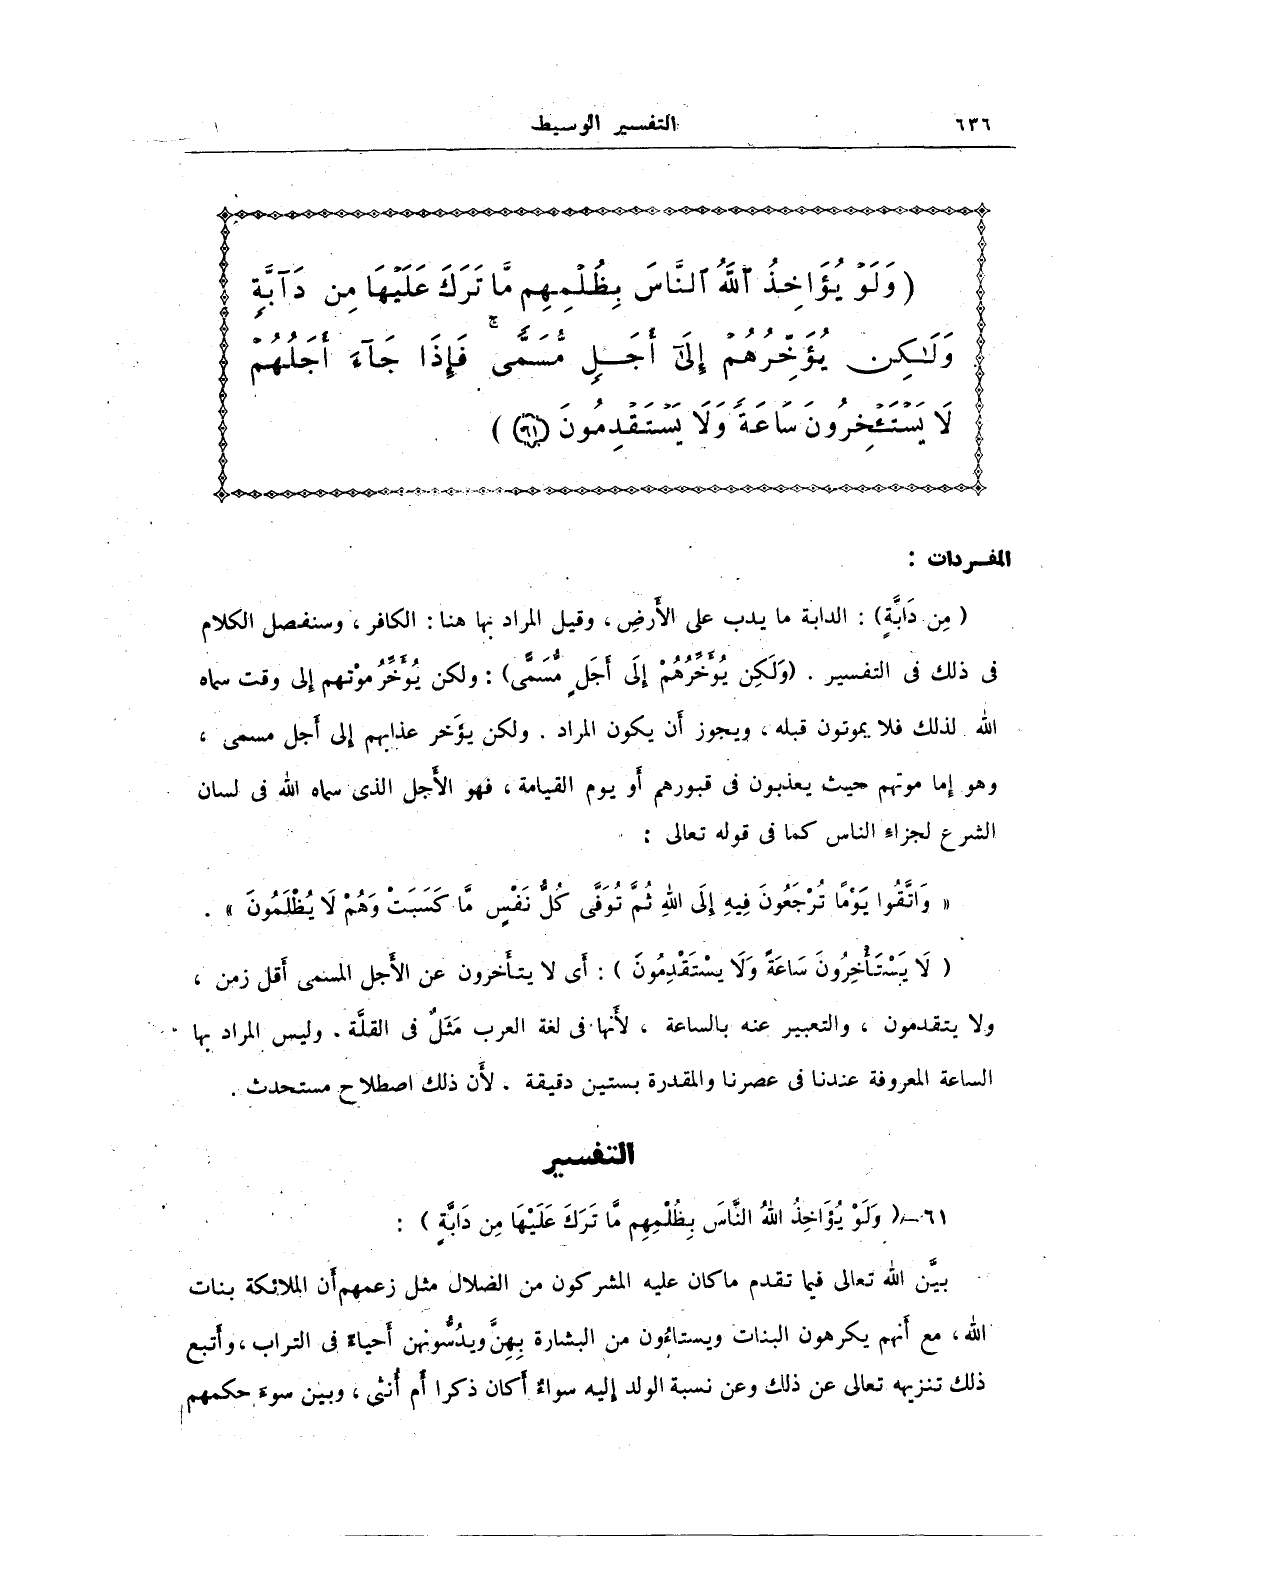 ٦٣٦ التفسير الوسيط
( وَلَوْ يُؤَاخِذُ ٱللَّهُ ٱلنَّاسَ بِظُلْمِهِم مَّا تَرَكَ عَلَيْهَا مِن دَآبَّةٍ
وَلَـٰكِن يُؤَخِّرُهُمْ إِلَىٰٓ أَجَلٍ مُّسَمًّى ۚ فَإِذَا جَآءَ أَجَلُهُمْ
لَا يَسْتَـْٔخِرُونَ سَاعَةً وَلَا يَسْتَقْدِمُونَ ﴿٦١﴾ )
المفردات :
( مِن دَابَّةٍ ) : الدابة ما يدب على الأَرضِ ، وقيل المراد بها هنا : الكافر ، وسنفصل الكلام
فى ذلك فى التفسير . ( وَلَكِن يُؤَخِّرُهُمْ إِلَى أَجَلٍ مُّسَمًّى ) : ولكن يُؤَخِّرُ موْتهم إلى وقت سماه
الله لذلك فلا يموتون قبله ، ويجوز أن يكون المراد . ولكن يؤَخر عذابهم إلى أجل مسمى ،
وهو إما موتهم حيث يعذبون فى قبورهم أو يوم القيامة ، فهو الأَجل الذى سماه الله فى لسان
الشرع لجزاء الناس كما فى قوله تعالى :
« وَاتَّقُوا يَوْمًا تُرْجَعُونَ فِيهِ إِلَى اللهِ ثُمَّ تُوَفَّى كُلُّ نَفْسٍ مَّا كَسَبَتْ وَهُمْ لَا يُظْلَمُونَ » .
( لَا يَسْتَأْخِرُونَ سَاعَةً وَلَا يسْتَقْدِمُونَ ) : أى لا يتأخرون عن الأَجل المسمى أقل زمن ،
ولا يتقدمون ، والتعبير عنه بالساعة ، لأَنها فى لغة العرب مَثَلٌ فى القلَّة . وليس المراد بها
الساعة المعروفة عندنا فى عصرنا والمقدرة بستين دقيقة . لأَن ذلك اصطلاح مستحدث .
التفسير
٦١ – ( وَلَوْ يُؤَاخِذُ اللهُ النَّاسَ بِظُلْمِهِم مَّا تَرَكَ عَلَيْهَا مِن دَابَّةٍ ) :
بيَّن الله تعالى فيما تقدم ماكان عليه المشركون من الضلال مثل زعمهم أَن الملائكة بنات
الله ، مع أَنهم يكرهون البنات ويستاءُون من البشارة بِهِنَّ ويدُسُّونهن أَحياءً فى التراب ، وأَتبع
ذلك تنزيهه تعالى عن ذلك وعن نسبة الولد إليه سواءٌ أَكان ذكرا أَم أُنثى ، وبين سوءَ حكمهم